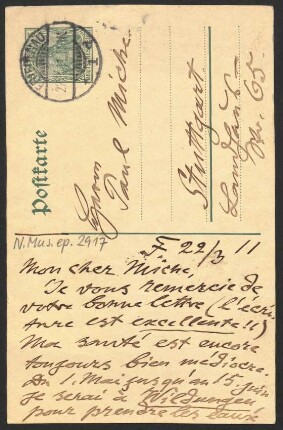 Postkarte
Herrn
Paul Miche
Stuttgart
N. Mus. ep. 2917
Fr 22/3 11
Mon cher Miche,
Je vous remercie de
votre bonne lettre (l'écri-
ture est excellente!!)
Ma santé est encore
toujours bien médiocre.
Du 1. Mai jusqu'au 15. juin
je serai à Wildungen
pour prendre les eaux